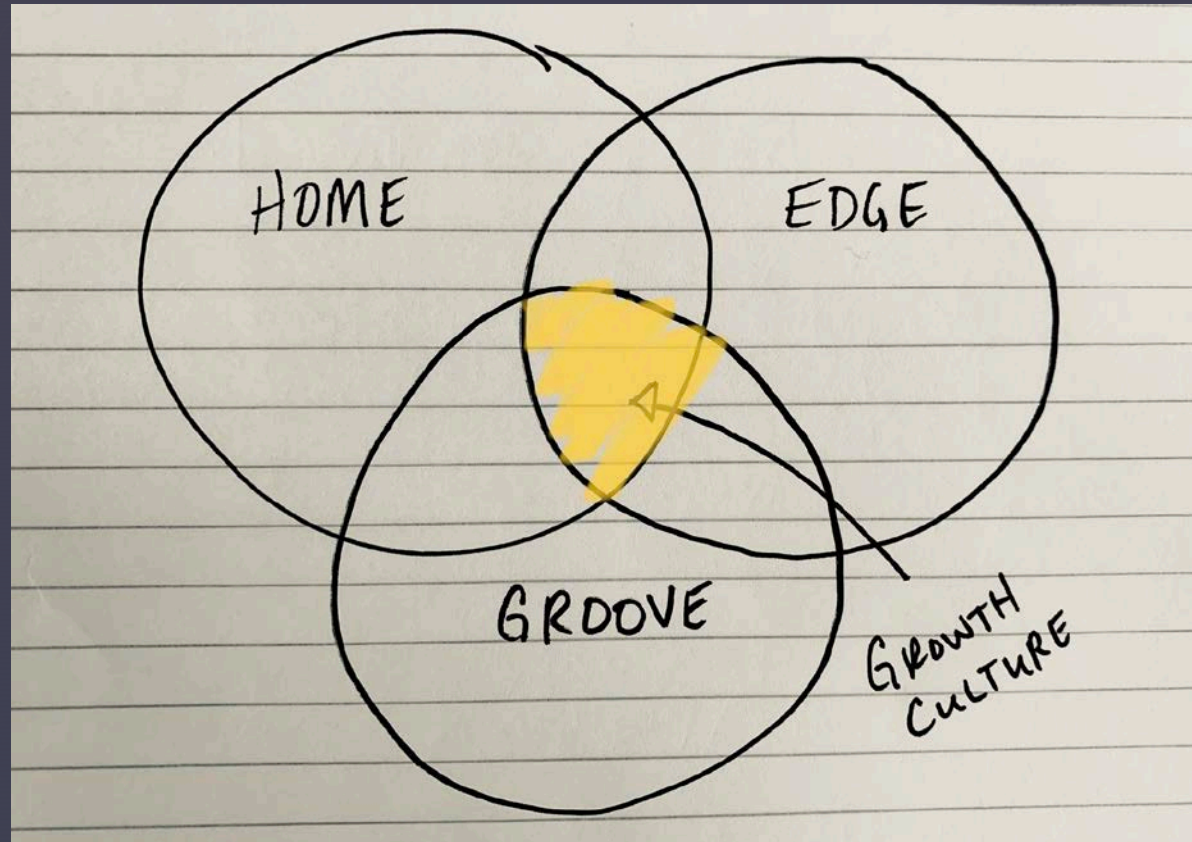 HOME
EDGE
GROOVE
GROWTH
CULTURE